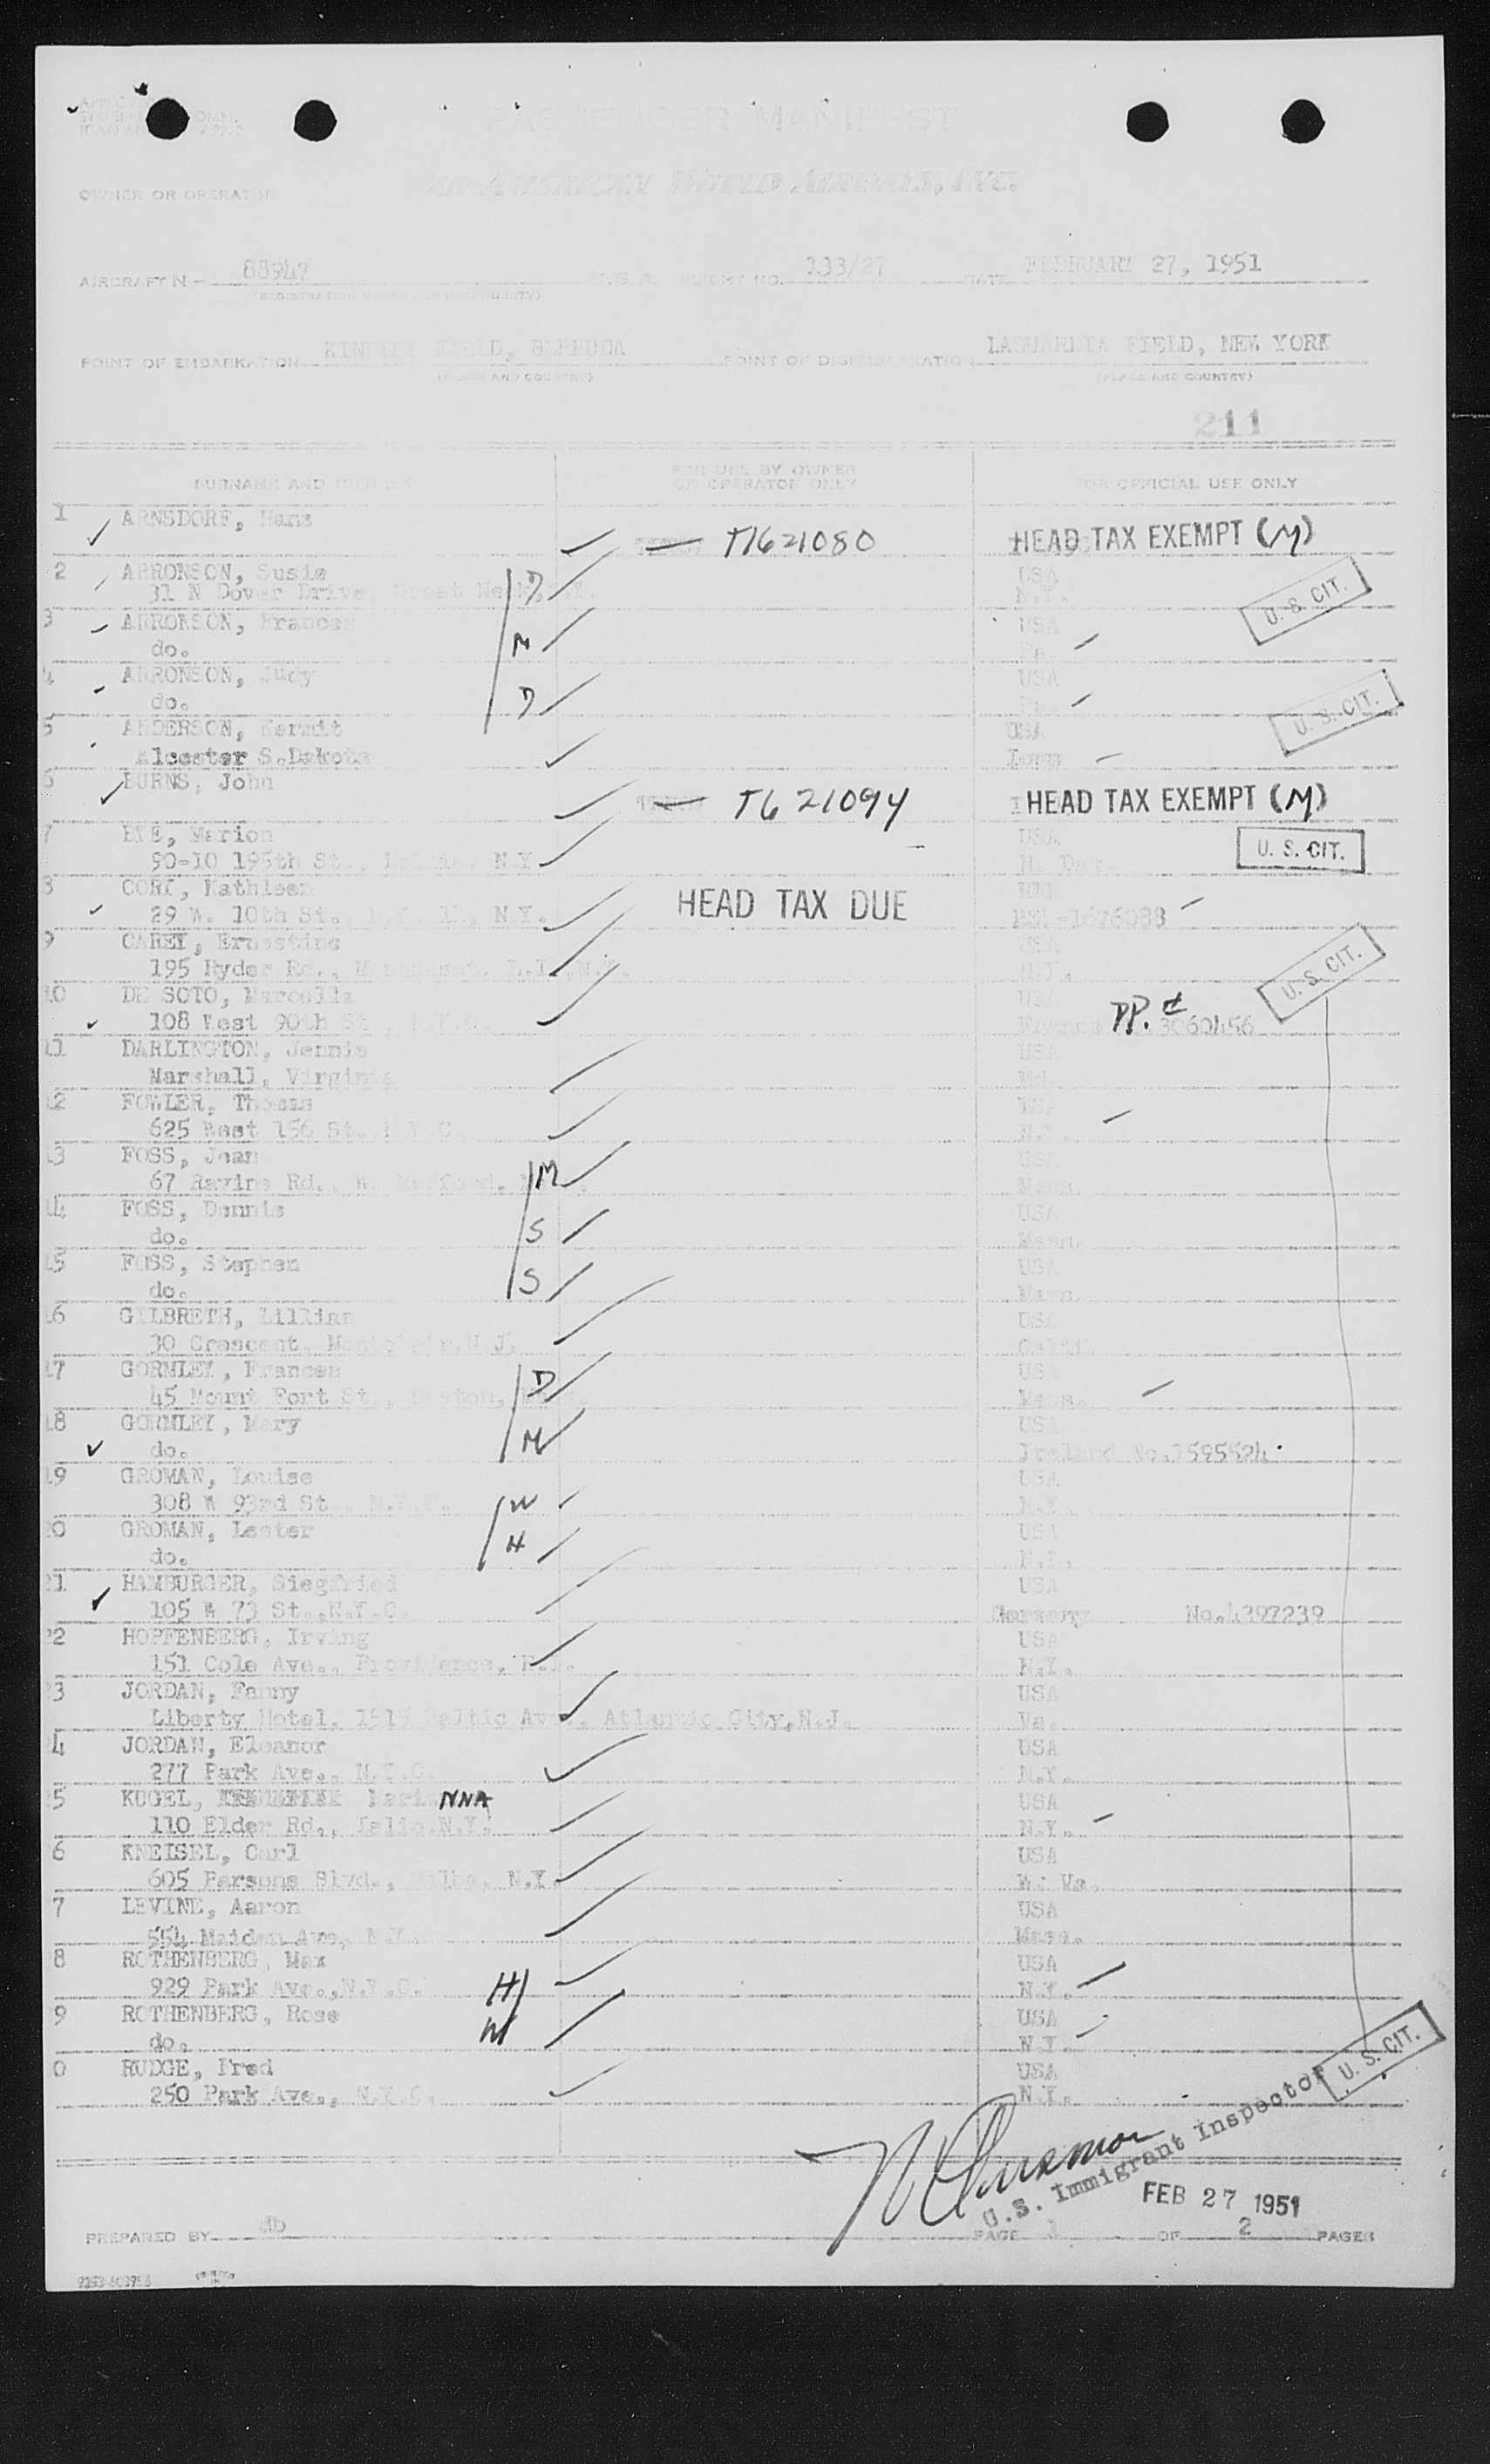 PASSENGER MANIFEST
OWNER OR OPERATOR PAN AMERICAN WORLD AIRWAYS, INC.
AIRCRAFT N- 88947 U.S.A. FLIGHT NO. 133/27 DATE FEBRUARY 27, 1951
POINT OF EMBARKATION KINDLEY FIELD, BERMUDA POINT OF DISEMBARKATION LAGUARDIA FIELD, NEW YORK
(PLACE AND COUNTRY) (PLACE AND COUNTRY)
211
SURNAME AND FOR USE BY OWNER OR OPERATOR ONLY FOR OFFICIAL USE ONLY
1 ARNSDORF, Hans
T1621080 HEAD TAX EXEMPT (M)
2 ARRONSON, Susie D USA
31 N Dover Drive, Great Neck, N.Y. N.Y. U. S. CIT.
3 ARRONSON, Frances USA
do. M Pa.
4 ARRONSON, Judy USA
do. D Pa. U. S. CIT.
5 ANDERSON, Kermit USA
Alcester S.Dakota Iowa
6 BURNS, John
T621094 HEAD TAX EXEMPT (M)
7 BYE, Marion USA
90-10 195th St., Hollis, N.Y. N. Dak. U. S. CIT.
8 CORY, Kathleen
29 W. 10th St., N.Y. N.Y. HEAD TAX DUE
9 CAREY, Ernestine USA
195 Ryder Rd., Manhasset, L.I., N.Y. N.Y. U. S. CIT.
10 DE SOTO, Marcella USA
108 West 90th St., N.Y.C. France PP. 3060456
11 DARLINGTON, Jennie USA
Marshall, Virginia Md.
12 FOWLER, Thomas USA
625 West 156 St. N.Y.C. N.Y.
13 FOSS, Jean USA
67 Ravine Rd., W. Medford, M Mass.
14 FOSS, Dennis USA
do. S Mass.
15 FOSS, Stephen USA
do. S Mass.
16 GILBRETH, Lillian USA
30 Crescent, Montclair, N.J. Calif.
17 GORMLEY, Frances USA
45 Mount Fort St., Boston, D Mass.
18 GORMLEY, Mary USA
do. M Ireland No.1595524
19 GROMAN, Louise USA
308 W 93rd St., N.Y.C. W N.Y.
20 GROMAN, Lester USA
do. H N.Y.
21 HAMBURGER, Siegfried USA
105 W 73 St., N.Y.C. Germany No.4397239
22 HOPFENBERG, Irving USA
151 Cole Ave., Providence, R.I. N.Y.
23 JORDAN, Fanny USA
Liberty Hotel, 1515 Baltic Ave., Atlantic City, N.J. Va.
24 JORDAN, Eleanor USA
277 Park Ave., N.Y.C. N.Y.
5 KUGEL, NNA USA
110 Elder Rd., Islip N.Y. N.Y.
6 KNEISEL, Carl USA
605 Parsons Blvd., Malba, N.Y. W. Va.
7 LEVINE, Aaron USA
554 Maiden Ave, N.Y. Mass.
8 ROTHENBERG, Max USA
929 Park Ave., N.Y.C. H N.Y.
9 ROTHENBERG, Rose USA
do. W N.Y.
0 RUDGE, Fred USA
250 Park Ave., N.Y.C. N.Y. U. S. CIT.
U.S. Immigrant Inspector
FEB 27 1951
PREPARED BY db PAGE 1 OF 2 PAGES